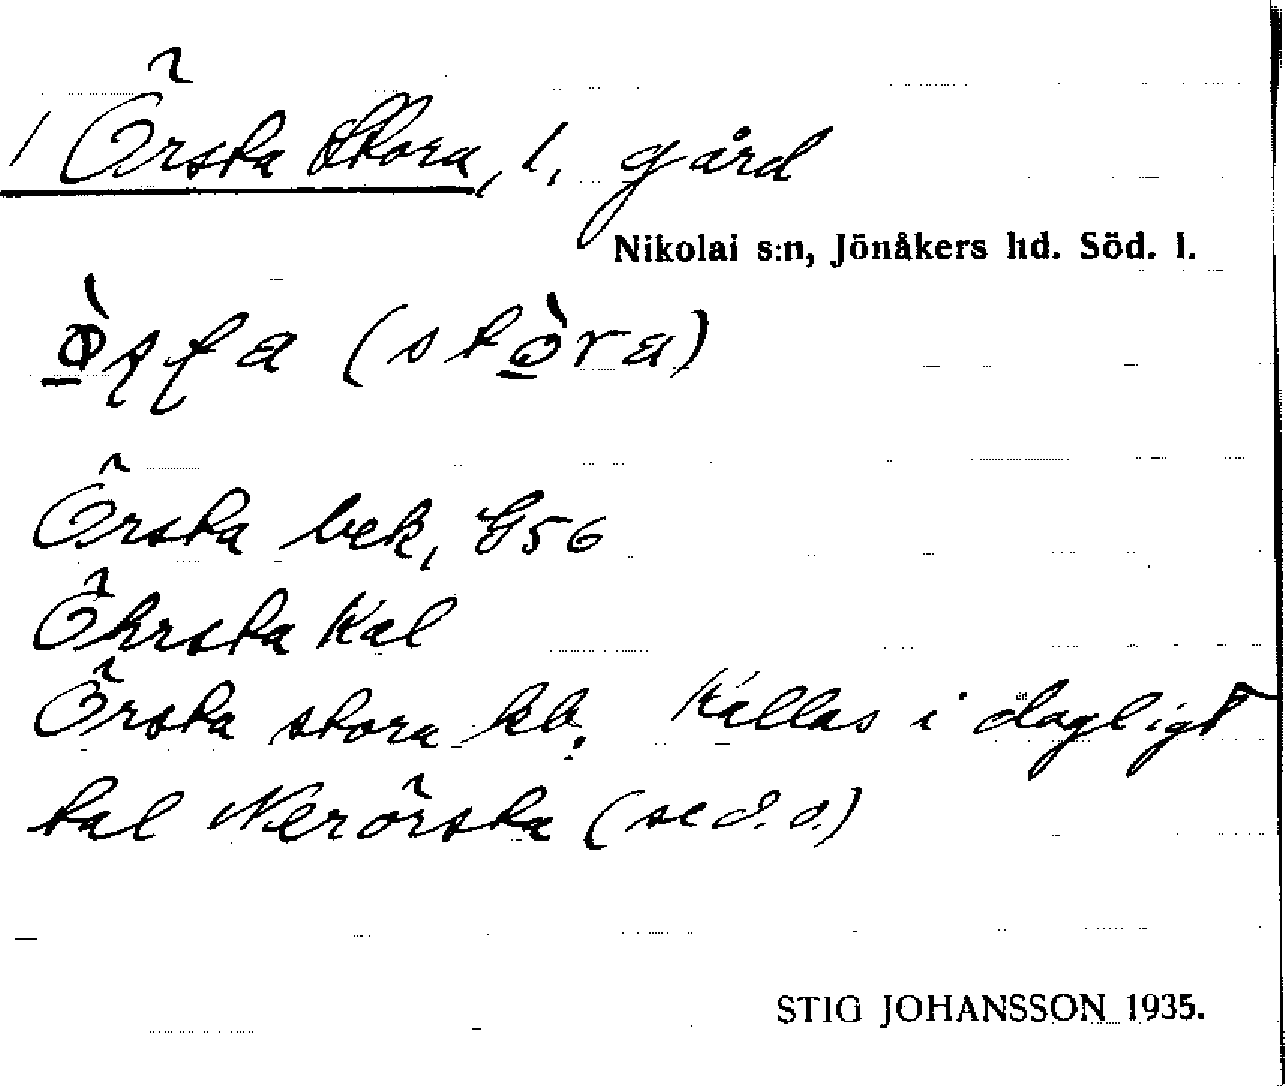 / Örsta Stora, 1, gård
Nikolai s:n, Jönåkers hd. Söd. l.
(stòra)
Örsta bek, G56
Öhrsta Kal
Örsta stora kb. Kallas i dagligt
tal Nerörsta (se d. o.)
STIG JOHANSSON 1935.